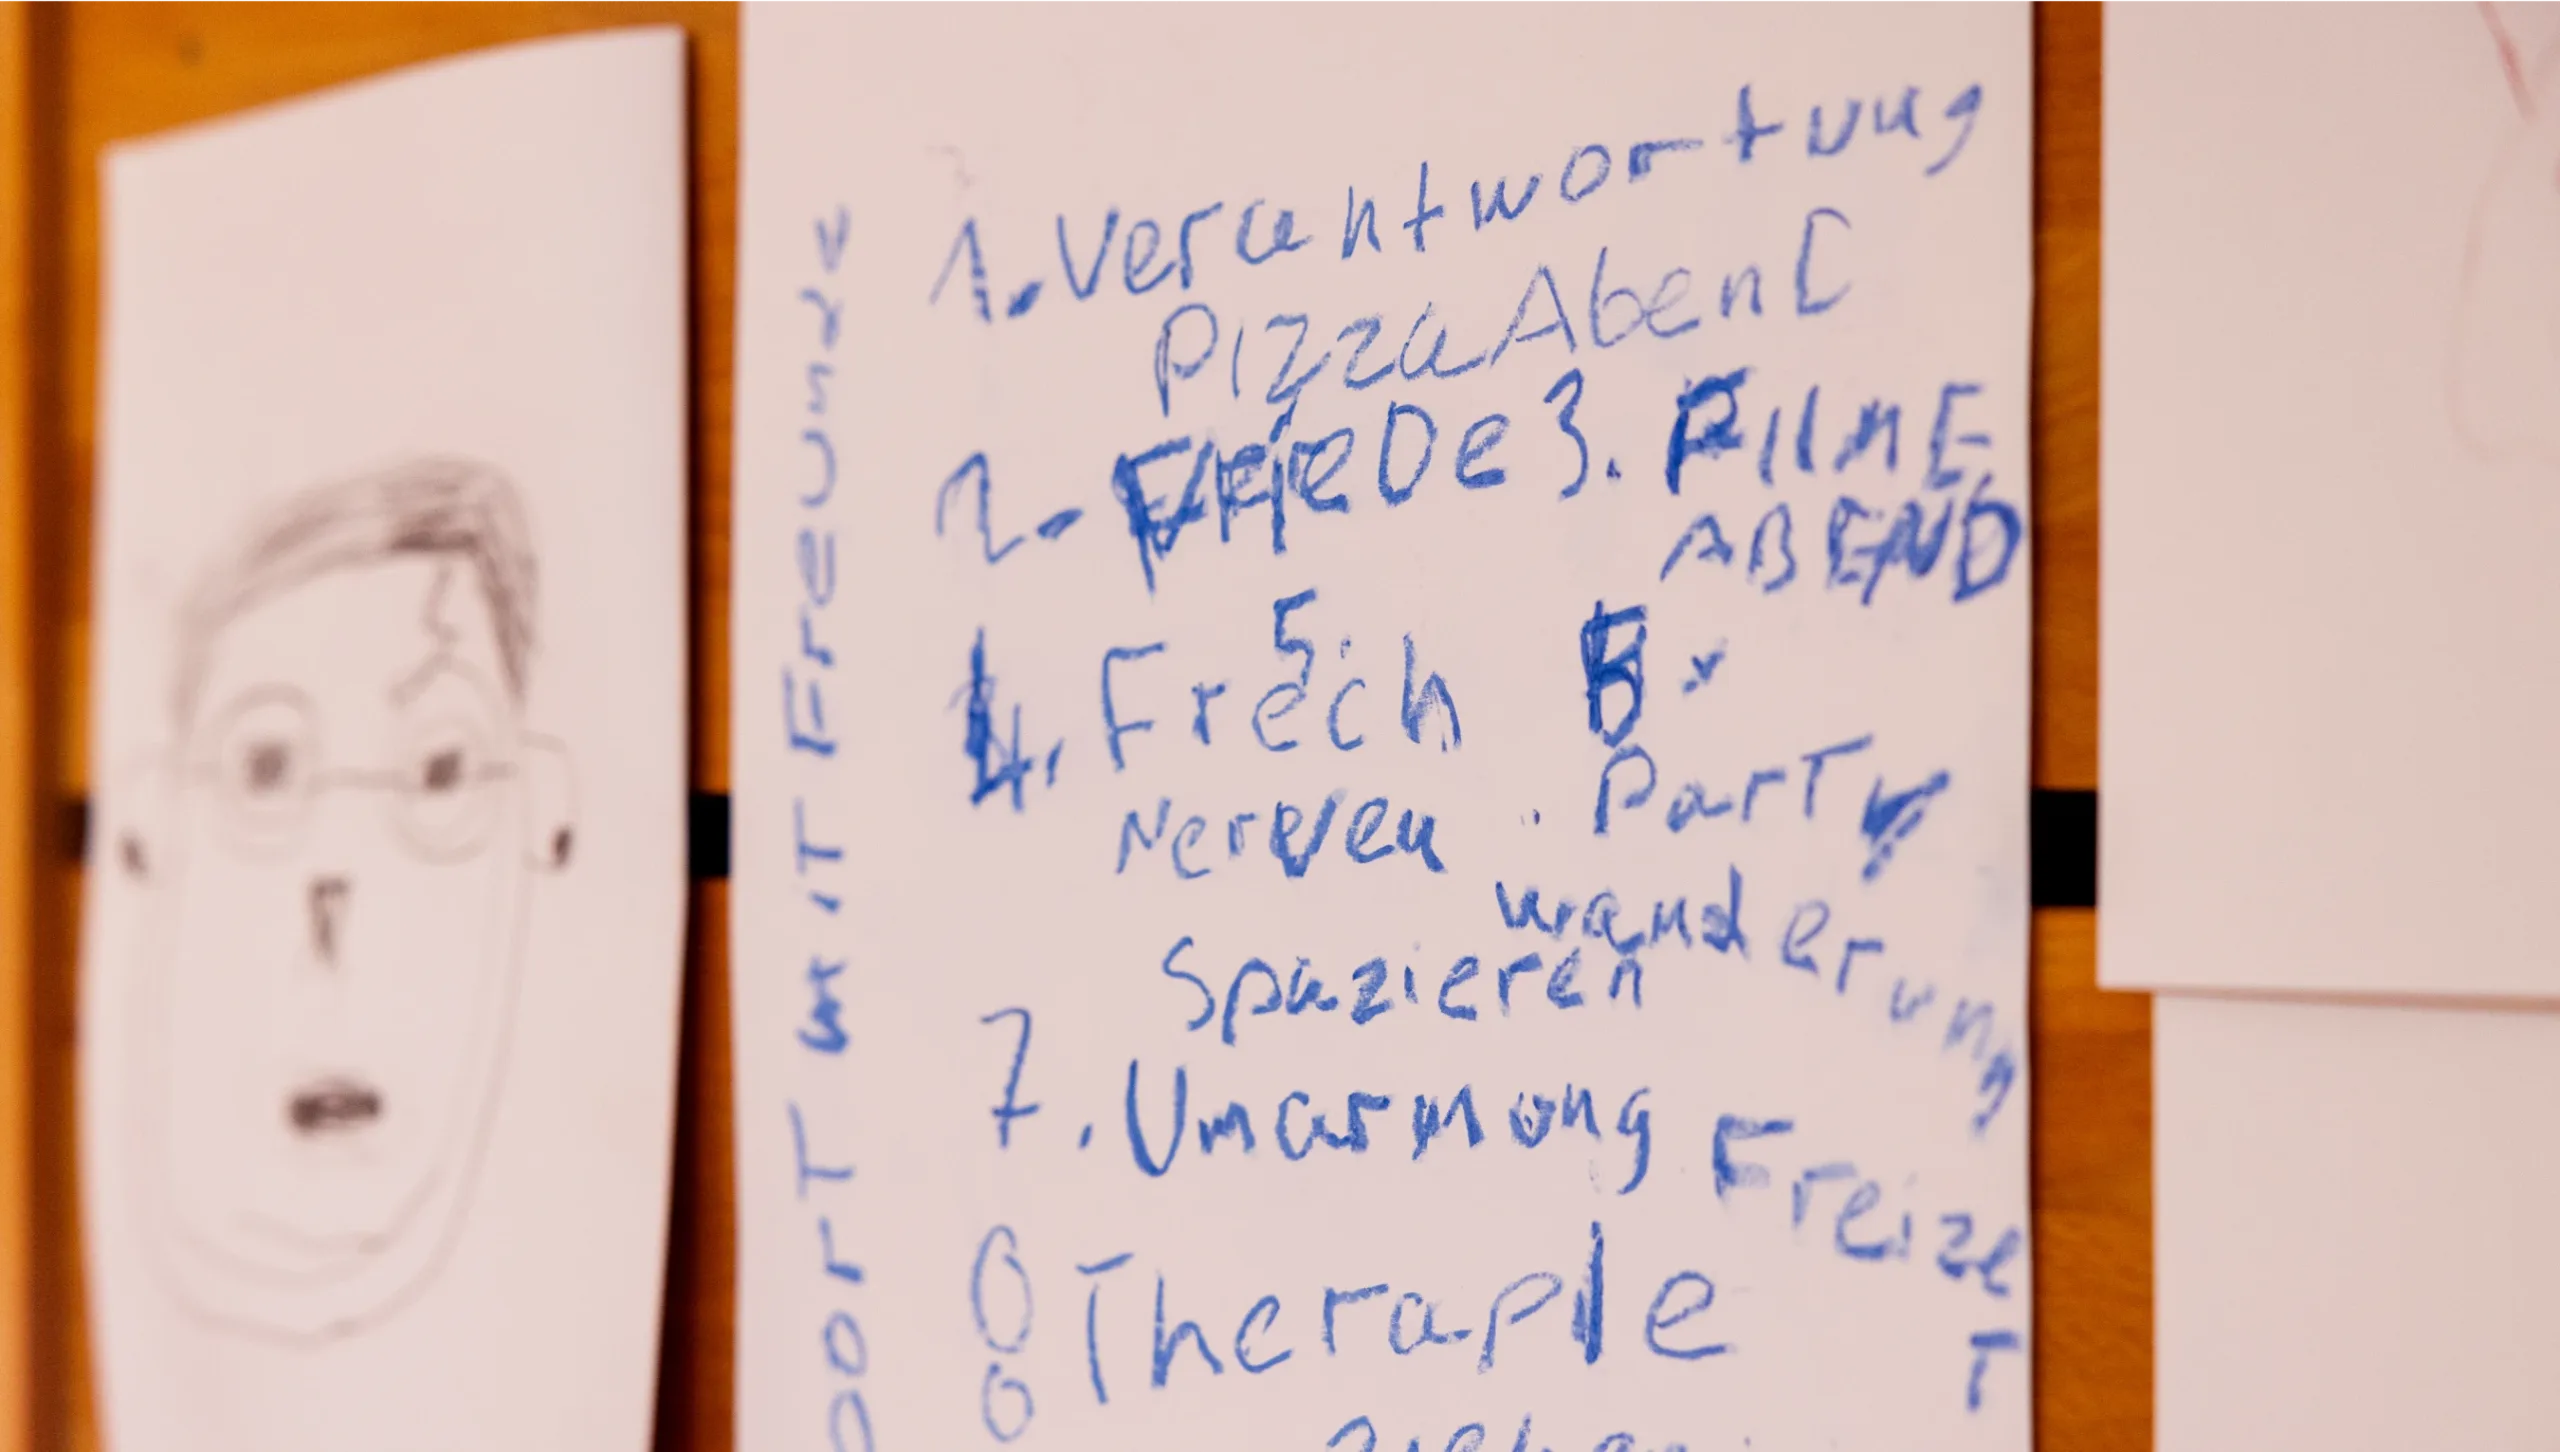 1. Verantwortung
PizzaAbend
2. FrieDe 3. FilmE
ABEND
4. Frech 5.
Nerven . Party
wanderung
Spazieren
7. Umarmung Freizeit
8 Therapie
ort mit Freunde